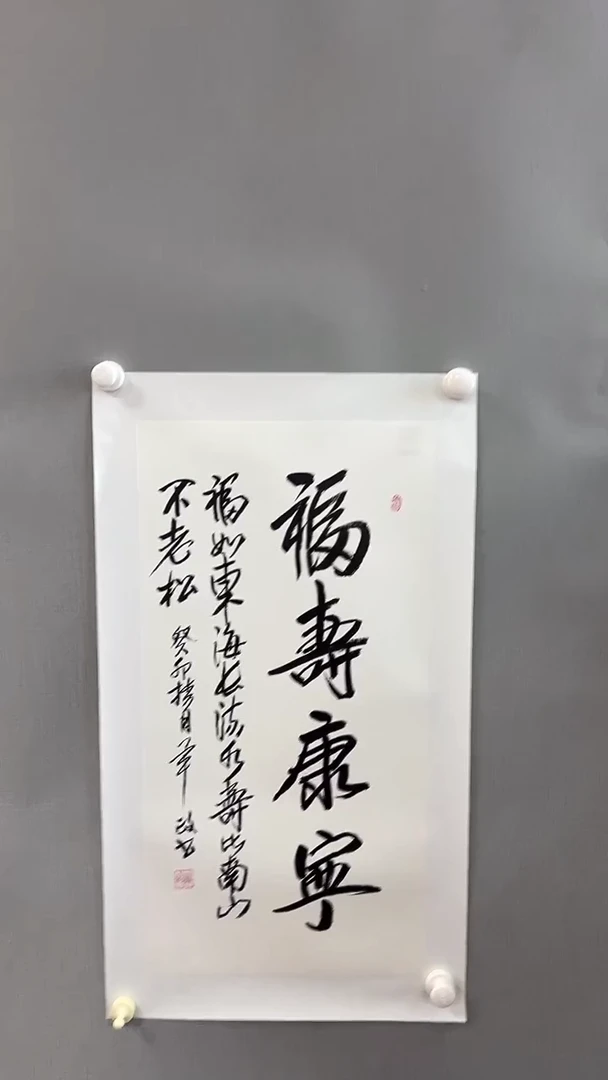 福壽康寧
福如東海長流水壽比南山
不老松
癸卯